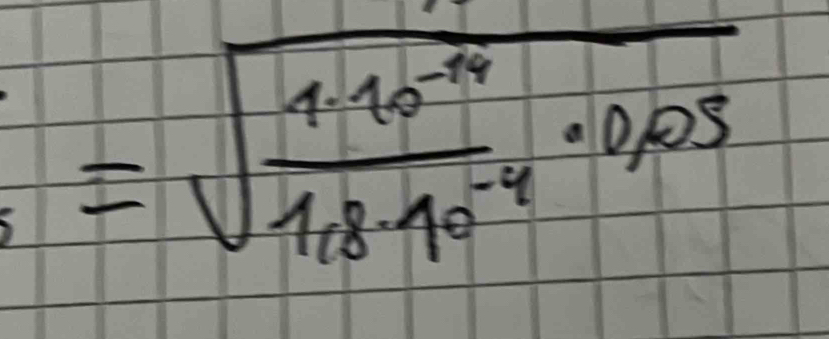 = √(1·10⁻¹⁴ / 1,8·10⁻⁴ · 0,05)